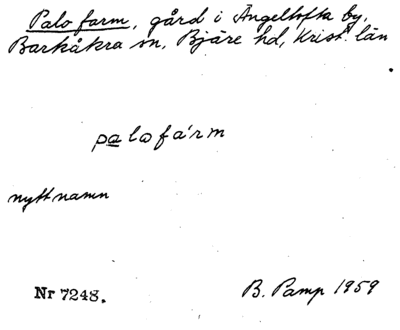 Palo farm, gård i Ängeltofta by,
Barkåkra sn, Bjäre hd, Krist. län
palofárm
nytt namn
Nr 7248. B. Pamp 1959